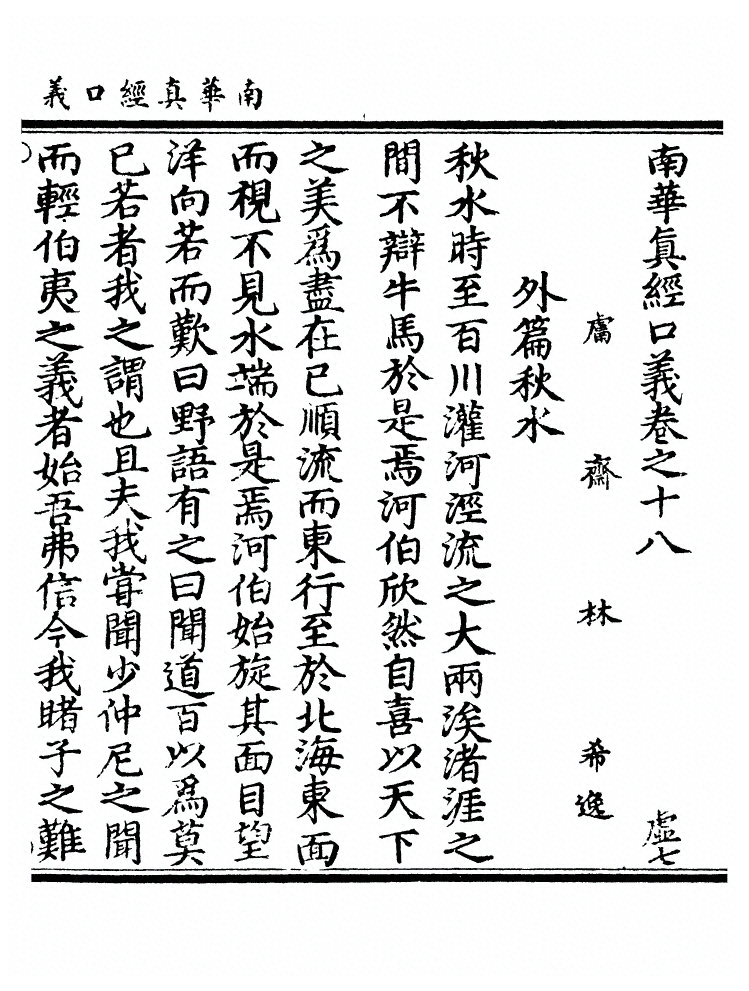 南華真經口義
南華眞經口義卷之十八
虛七
鬳齋林希逸
外篇秋水
秋水時至百川灌河涇流之大兩涘渚涯之
間不辯牛馬於是焉河伯欣然自喜以天下
之美爲盡在已順流而東行至於北海東面
而視不見水端於是焉河伯始旋其面目望
洋向若而歎曰野語有之曰聞道百以爲莫
已若者我之謂也且夫我嘗聞少仲尼之聞
而輕伯夷之義者始吾弗信今我睹子之難